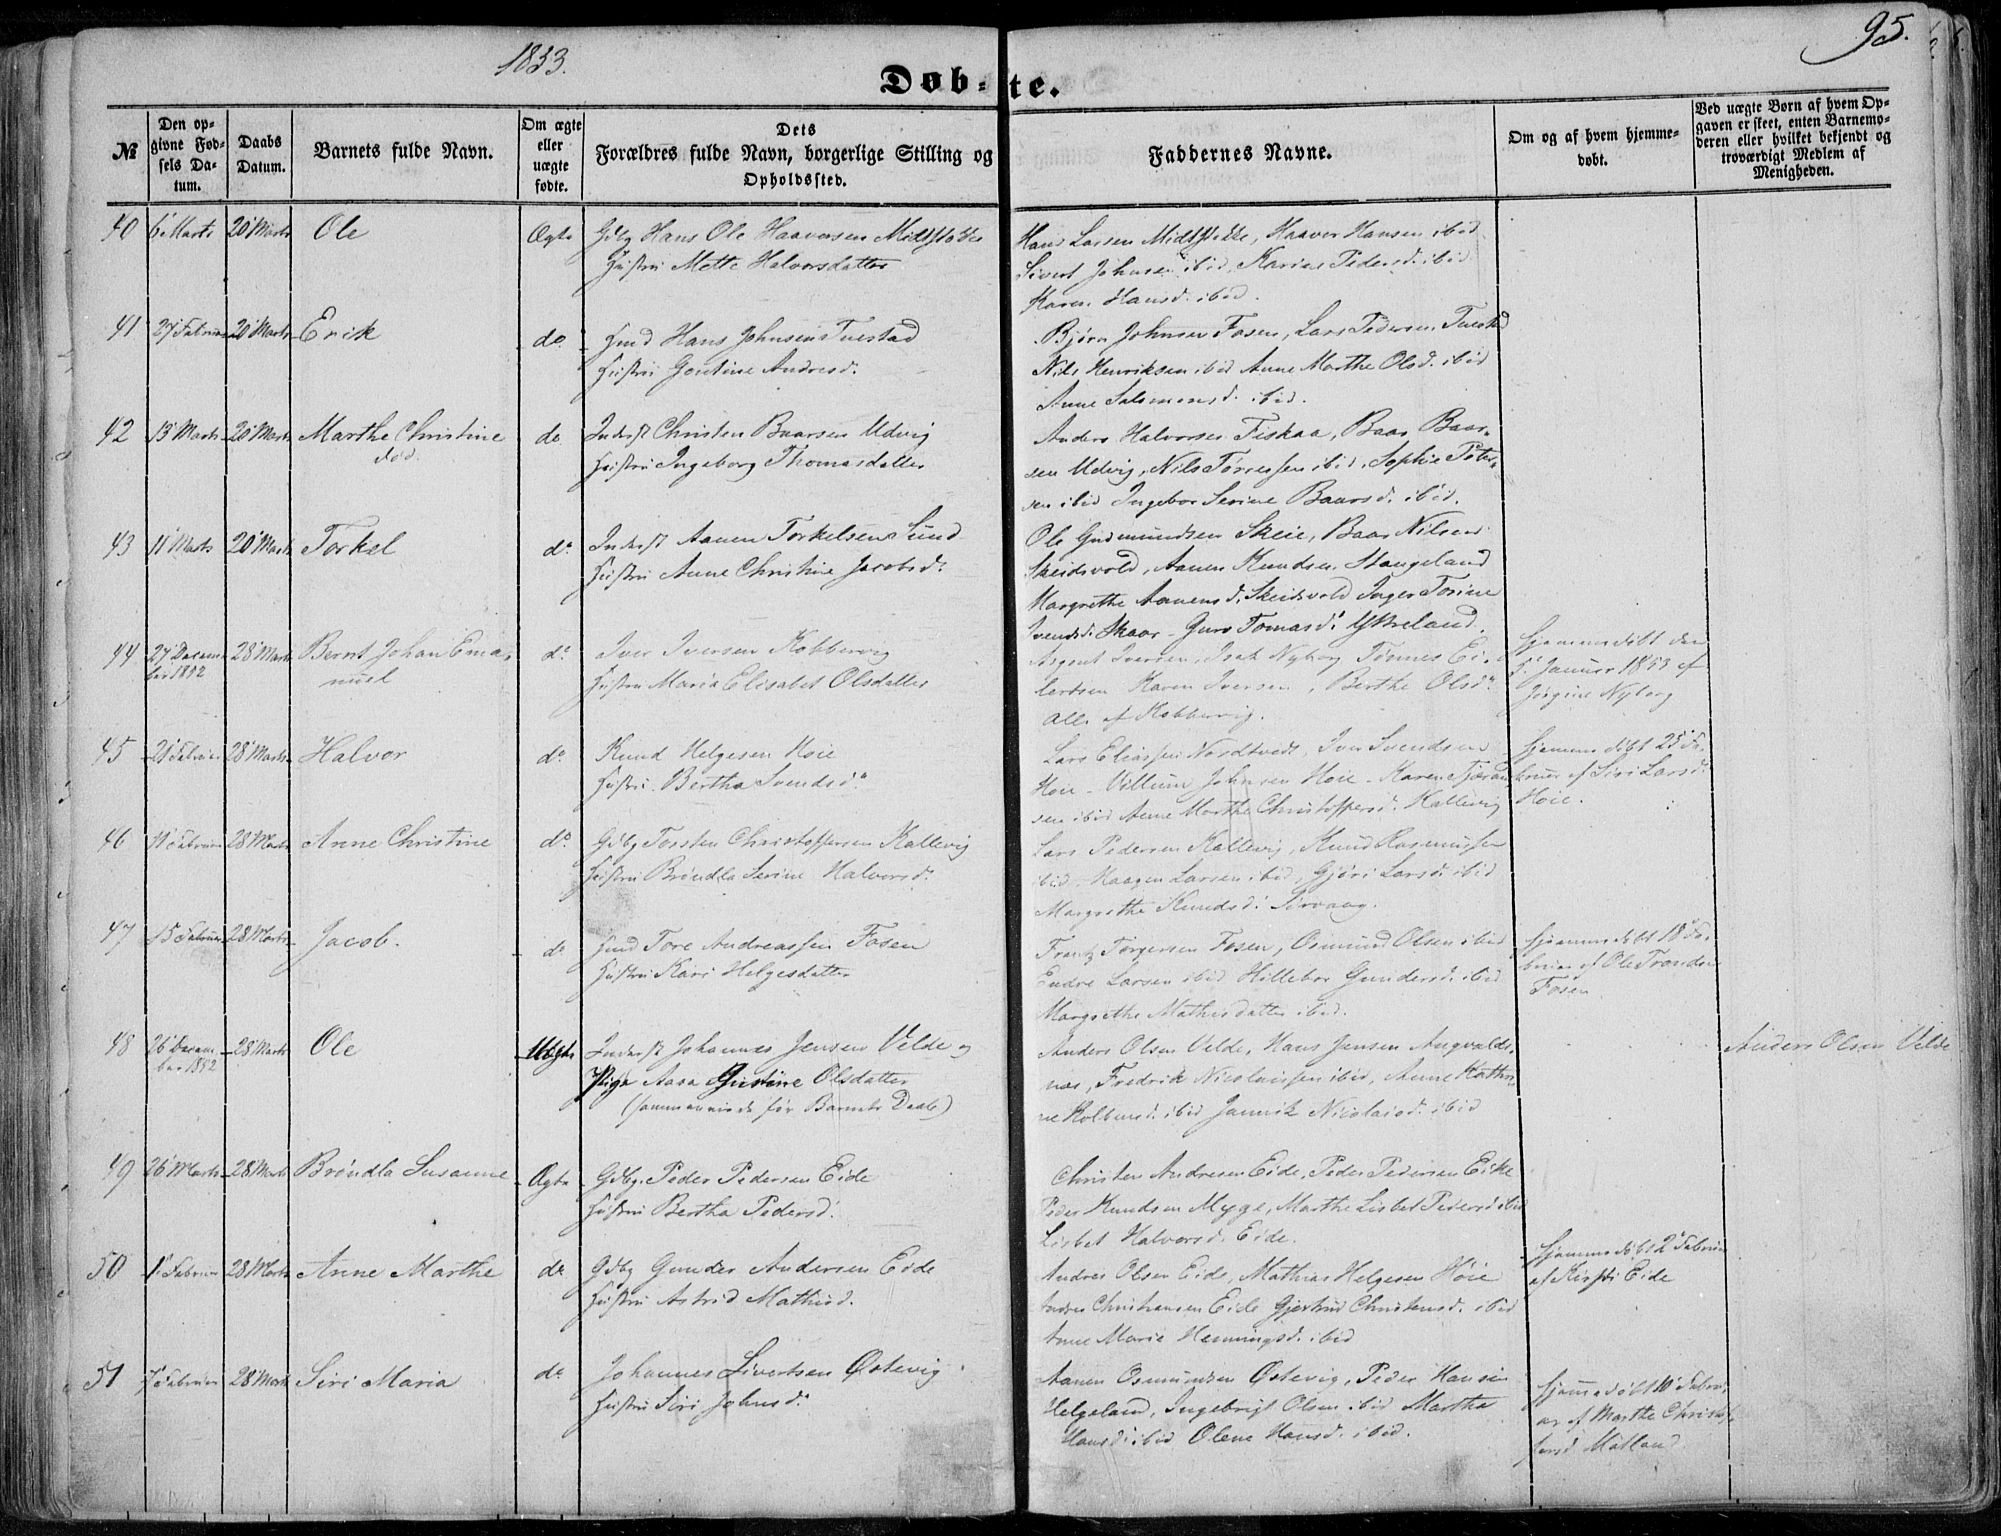 1853.
95.
Døb-te.
№
Den op-
givne Fød-
sels Da-
tum.
Daabs
Datum.
Barnets fulde Navn.
Om ægte
eller
uægte
fødte.
Dets
Forældres fulde Navn, borgerlige Stilling og
Opholdssted.
Faddernes Navne.
Om og af hvem hjemme-
døbt.
Ved uægte Børn af hvem Op-
gaven er skeet, enten Barnemo-
deren eller hvilket bekjendt og
troværdigt Medlem af
Menigheden.
40 6 Marts 20 Marts Ole Ægte Gdbg Hans Ole Haaversen
Hustru Mette Halvorsdatter
Hans Larsen Haaver Hansen ibid
Sivert Johnsen ibid, Karine Pedersd. ibid
Karen Hansd. ibid.
41 27 Februar 20 Marts Erik do Hmd Hans Johnsen Tuestad
Hustru Gontine Andresd.
Bjørn Johnsen Fosen, Lars Pedersen Tuestad
Nils Henriksen ibid Anne Marthe Olsd. ibid
Anne Salomonsd. ibid.
42 13 Marts 20 Marts Marthe Christine
død.
do Inderst Christen Baarsen Udvig
Hustru Ingeborg Thomasdatter
Anders Halvorsen Fiskaa, Baar Baar-
sen Udvig, Nils ibid, Sophie Peter-
sen ibid Ingebor Serine Baarsd. ibid.
43 11 Marts 20 Marts Torkel do Inderst Aanen Torkelsen Sund
Hustru Anne Christine Jacobsd.
Ole Gudmundsen Skeie, Baar Nilsen
Skeidsvold, Aanen Knudsen Stangeland
Margrethe Aanensd. Skeidsvold Inger Torine
Ivendsd. Skaar - Guro Tomasd. Ytreland.
44 27 Decem-
ber 1852
28 Marts Bernt Johan Ema-
nuel
do Iver Iversen Kobbervig
Hustru Maria Elisabet Olsdatter
Asgout Iversen, Isak Nyborg Tønnes Ei-
lertsen Karen Iversen, Berthe Olsd.
alle af Kobbervig.
Hjemmedøbt den
5 Januar 1853 af
Jørgine Nyborg
45 21 Februar 28 Marts Halvor do Knud Helgesen Hoie
Hustru Bertha Svendsd.
Lars Eliassen Nordtvedt, Iver Svendsen
Hoie - Villum Johnsen Hoie - Karen
sen ibid Anne Marthe Christoffersd. Kallevig
Hjemmedøbt 25 Fe-
bruar af Siri Larsd.
Hoie.
46 11 Februar 28 Marts Anne Christine do Gdbg Torsten Christoffersen Kallevig
Hustru Brøndla Serine Halvorsd.
Lars Pedersen Kallevig, Knud Rasmussen
ibid - Haagen Larsen ibid, Gjøri Larsd. ibid
Margrethe Knudsd. Sørvaag.
47 15 Februar 28 Marts Jacob. do Hmd Tore Andreassen Fosen
Hustru Kari Helgesdatter
Frantz Torgersen Fosen, Osmund Olsen ibid
Endre Larsen ibid Hillebor Gundersd. ibid
Margrethe Mathisdatter ibid.
Hjemmedøbt 18 Fe-
bruar af Ole Trondsen
Fosen
48 26 Decem-
ber 1852
28 Marts Ole Uægte Inderst Johannes Jensen Velde og
Pige Aasa Gustine Olsdatter
(sammenviede før Barnets Daab)
Anders Olsen Velde, Hans Jensen Augvalds-
næs, Fredrik Nicolaissen ibid, Anne Kathri-
ne Kolbensd. ibid Jannik Nicolaisd. ibid
Anders Olsen Velde
49 26 Marts 28 Marts Brøndla Susanne Ægte Gdbg. Peder Pedersen Eide
Hustru Bertha Pedersd.
Christen Andresen Eide, Peder Pedersen Eike
Peder Knudsen Myge, Marthe Lisbet Pedersd ibid
Lisbet Halvorsd. Eide.
50 1 Februar 28 Marts Anne Marthe do Gdbg Gunder Andersen Eide
Hustru Astrid Mathisd.
Andres Olsen Eide, Mathias Helgesen Hoie
Andres Christiansen Eide Gjertrud Christensd. ibid
Anne Marie Henningsd. ibid
Hjemmedøbt 2 Februar
af Kirsti Eide
51 7 Februar 28 Marts Siri Maria do Johannes Sivertsen Østevig
Hustru Siri Johnsd.
Aanen Osmundsen Østevig, Peder Hansen
Helgeland, Ingebrigt Olsen ibid Martha
Hansd. ibid Olene Hansd. ibid.
Hjemmedøbt 10 Febru-
ar af Marthe Christof-
fersd Matland